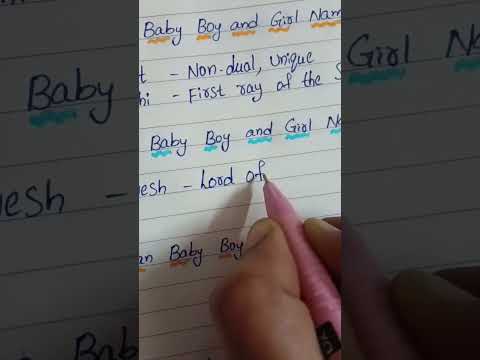 Baby Boy and Girl Nam
t - Non-dual, Unique
hi - First ray of the S
Baby Boy and Girl Na
esh - Lord of
an Baby Boy